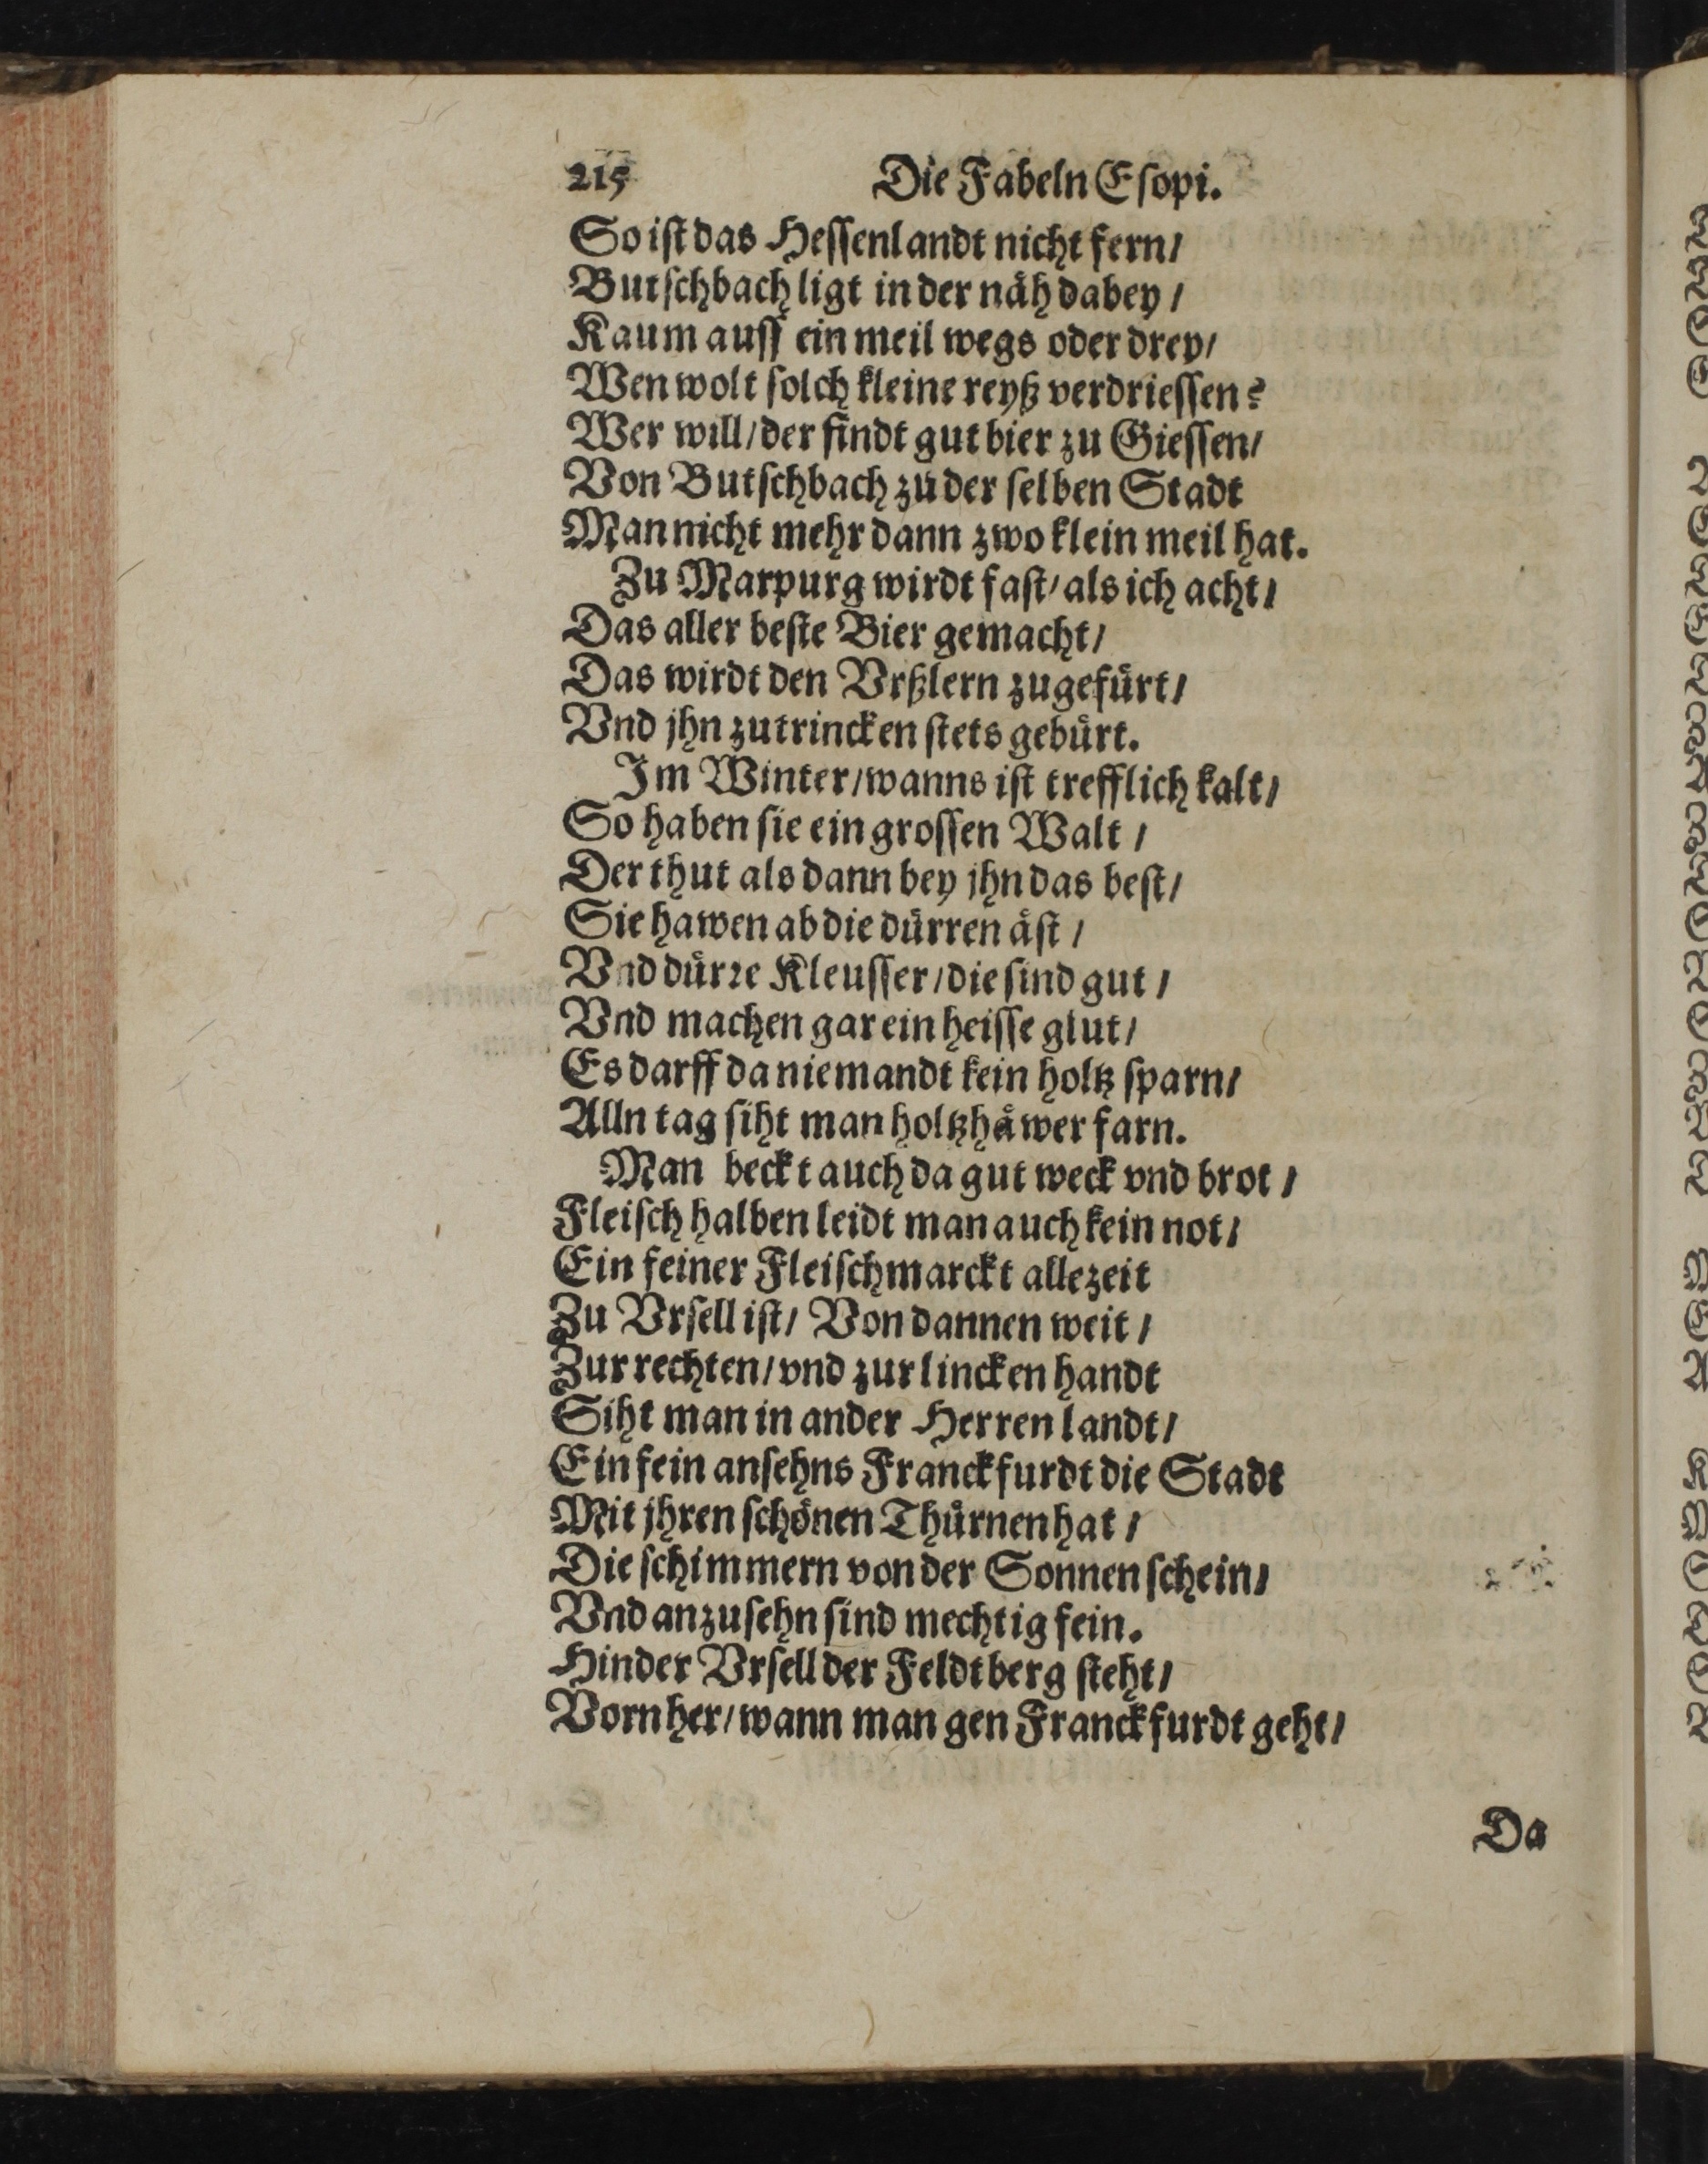 215 Die Fabeln Eſopi.
So iſt das Heſſenlandt nicht fern/
Butſchbach ligt in der nåh dabey/
Kaum auff ein meil wegs oder drey/
Wen wolt ſolch kleine reyß verdrieſſen?
Wer will/der findt gut bier zu Gieſſen/
Von Butſchbach zu der ſelben Stadt
Man nicht mehr dann zwo klein meil hat.
Zu Marpurg wirdt faſt/als ich acht/
Das aller beſte Bier gemacht/
Das wirdt den Vrßlern zugefürt/
Vnd jhn zutrincken ſtets gebürt.
Im Winter/wanns iſt trefflich kalt/
So haben ſie ein groſſen Walt/
Der thut als dann bey jhn das beſt/
Sie hawen ab die dürren åſt/
Vnd dürre Kleuſſer/die ſind gut/
Vnd machen gar ein heiſſe glut/
Es darff da niemandt kein holtz ſparn/
Alln tag ſiht man holtzhåwer farn.
Man beckt auch da gut weck vnd brot/
Fleiſch halben leidt man auch kein not/
Ein feiner Fleiſchmarckt allezeit
Zu Vrſell iſt/ Von dannen weit/
Zur rechten/vnd zur lincken handt
Siht man in ander Herren landt/
Ein fein anſehns Franckfurdt die Stadt
Mit jhren ſchönen Thürnen hat/
Die ſchimmern von der Sonnen ſchein/
Vnd anzuſehn ſind mechtig fein.
Hinder Vrſell der Feldtberg ſteht/
Vornher/wann man gen Franckfurdt geht/
Da